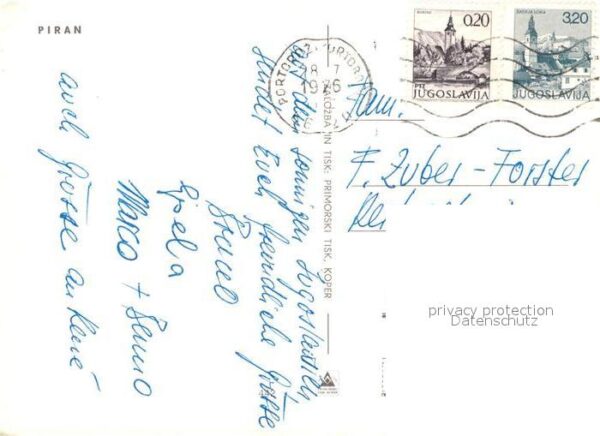 PIRAN
Aus dem sonnigen Jugoslawien
sendet Euch freundliche Grüsse
Bruno
Gisela
Marco + Benno
auch Grüsse an René
ZALOŽBA IN TISK: PRIMORSKI TISK, KOPER
PORTOROŽ
8 7
0.20
PTT JUGOSLAVIJA
3.20
JUGOSLAVIJA
Fam.
F. Zuber-Forster
privacy protection
Datenschutz